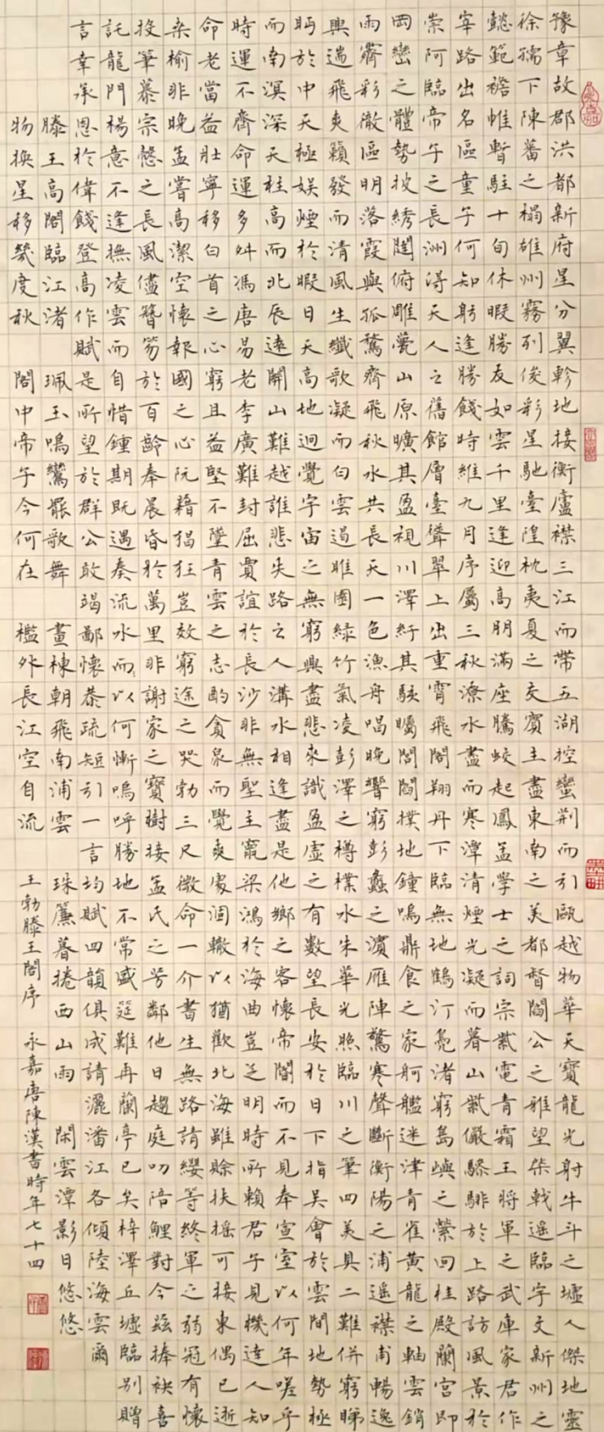 豫章故郡洪都新府星分翼軫地接衡廬襟三江而帶五湖控蠻荊而引甌越物華天寶龍光射牛斗之墟人傑地靈
徐孺下陳蕃之榻雄州霧列俊彩星馳臺隍枕夷夏之交賓主盡東南之美都督閻公之雅望棨戟遙臨宇文新州之
懿範襜帷暫駐十旬休暇勝友如雲千里逢迎高朋滿座騰蛟起鳳孟學士之詞宗紫電青霜王將軍之武庫家君作
宰路出名區童子何知躬逢勝餞時維九月序屬三秋潦水盡而寒潭清煙光凝而暮山紫儼驂騑於上路訪風景於
崇阿臨帝子之長洲得天人之舊館層臺聳翠上出重霄飛閣翔丹下臨無地鶴汀鳧渚窮島嶼之縈回桂殿蘭宮即
岡巒之體勢披綉闥俯雕甍山原曠其盈視川澤紆其駭矚閭閻撲地鐘鳴鼎食之家舸艦迷津青雀黃龍之軸雲銷
雨霽彩徹區明落霞與孤鶩齊飛秋水共長天一色漁舟唱晚響窮彭蠡之濱雁陣驚寒聲斷衡陽之浦遙襟甫暢逸
興遄飛爽籟發而清風生纖歌凝而白雲遏睢園綠竹氣凌彭澤之樽水朱華光照臨川之筆四美具二難併窮睇
眄於中天極娛煙於暇日天高地迥覺宇宙之無窮興盡悲來識盈虛之有數望長安於日下指吳會於雲間地勢極
而南溟深天柱高而北辰遠關山難越誰悲失路之人溝水相逢盡是他鄉之客懷帝閽而不見奉宣室以何年嗟乎
時運不齊命運多舛馮唐易老李廣難封屈賈誼於長沙非無聖主竄梁鴻於海曲豈乏明時所賴君子見機達人知
命老當益壯寧移白首之心窮且益堅不墜青雲之志酌貪泉而覺爽處涸轍以猶歡北海雖賒扶搖可接東隅已逝
桑榆非晚孟嘗高潔空懷報國之心阮籍猖狂豈效窮途之哭勃三尺微命一介書生無路請纓等終軍之弱冠有懷
投筆慕宗愨之長風儘簪笏於百齡奉晨昏於萬里非謝家之寶樹接孟氏之芳鄰他日趨庭叨陪鯉對今茲捧袂喜
託龍門楊意不逢撫凌雲而自惜鍾期既遇奏流水而以何慚嗚呼勝地不常盛筵難再蘭亭已矣梓澤丘墟臨別贈
言幸承恩於偉餞登高作賦是所望於群公敢竭鄙懷恭疏短引一言均賦四韻俱成請灑潘江各傾陸海雲爾
滕王高閣臨江渚 珮玉鳴鸞罷歌舞 畫棟朝飛南浦雲 珠簾暮捲西山雨 閑雲潭影日悠悠
物換星移幾度秋 閣中帝子今何在 檻外長江空自流 王勃滕王閣序 永嘉唐陳漢書時年七十四